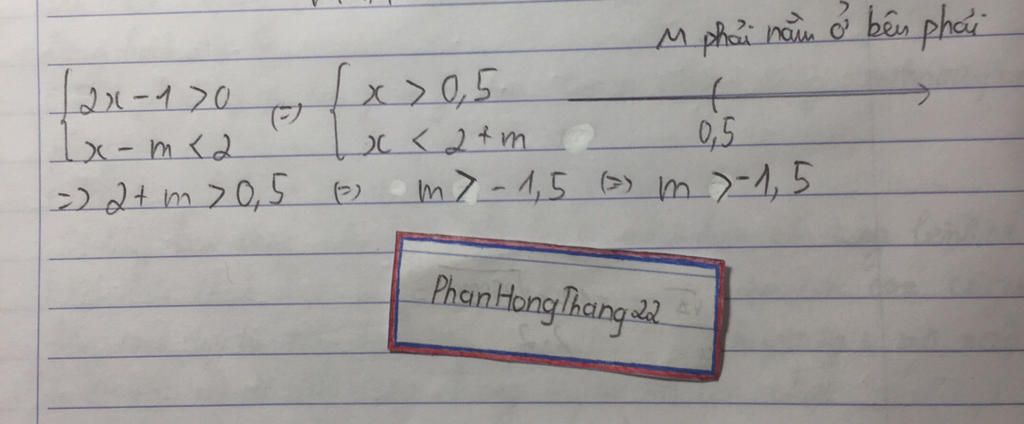 M phải nằm ở bên phải
{2x-1>0 (=) {x > 0,5
{x-m<2 {x < 2+m 0,5
=> 2+m>0,5 (=) m > -1,5 (=) m > -1,5
PhanHongThang22